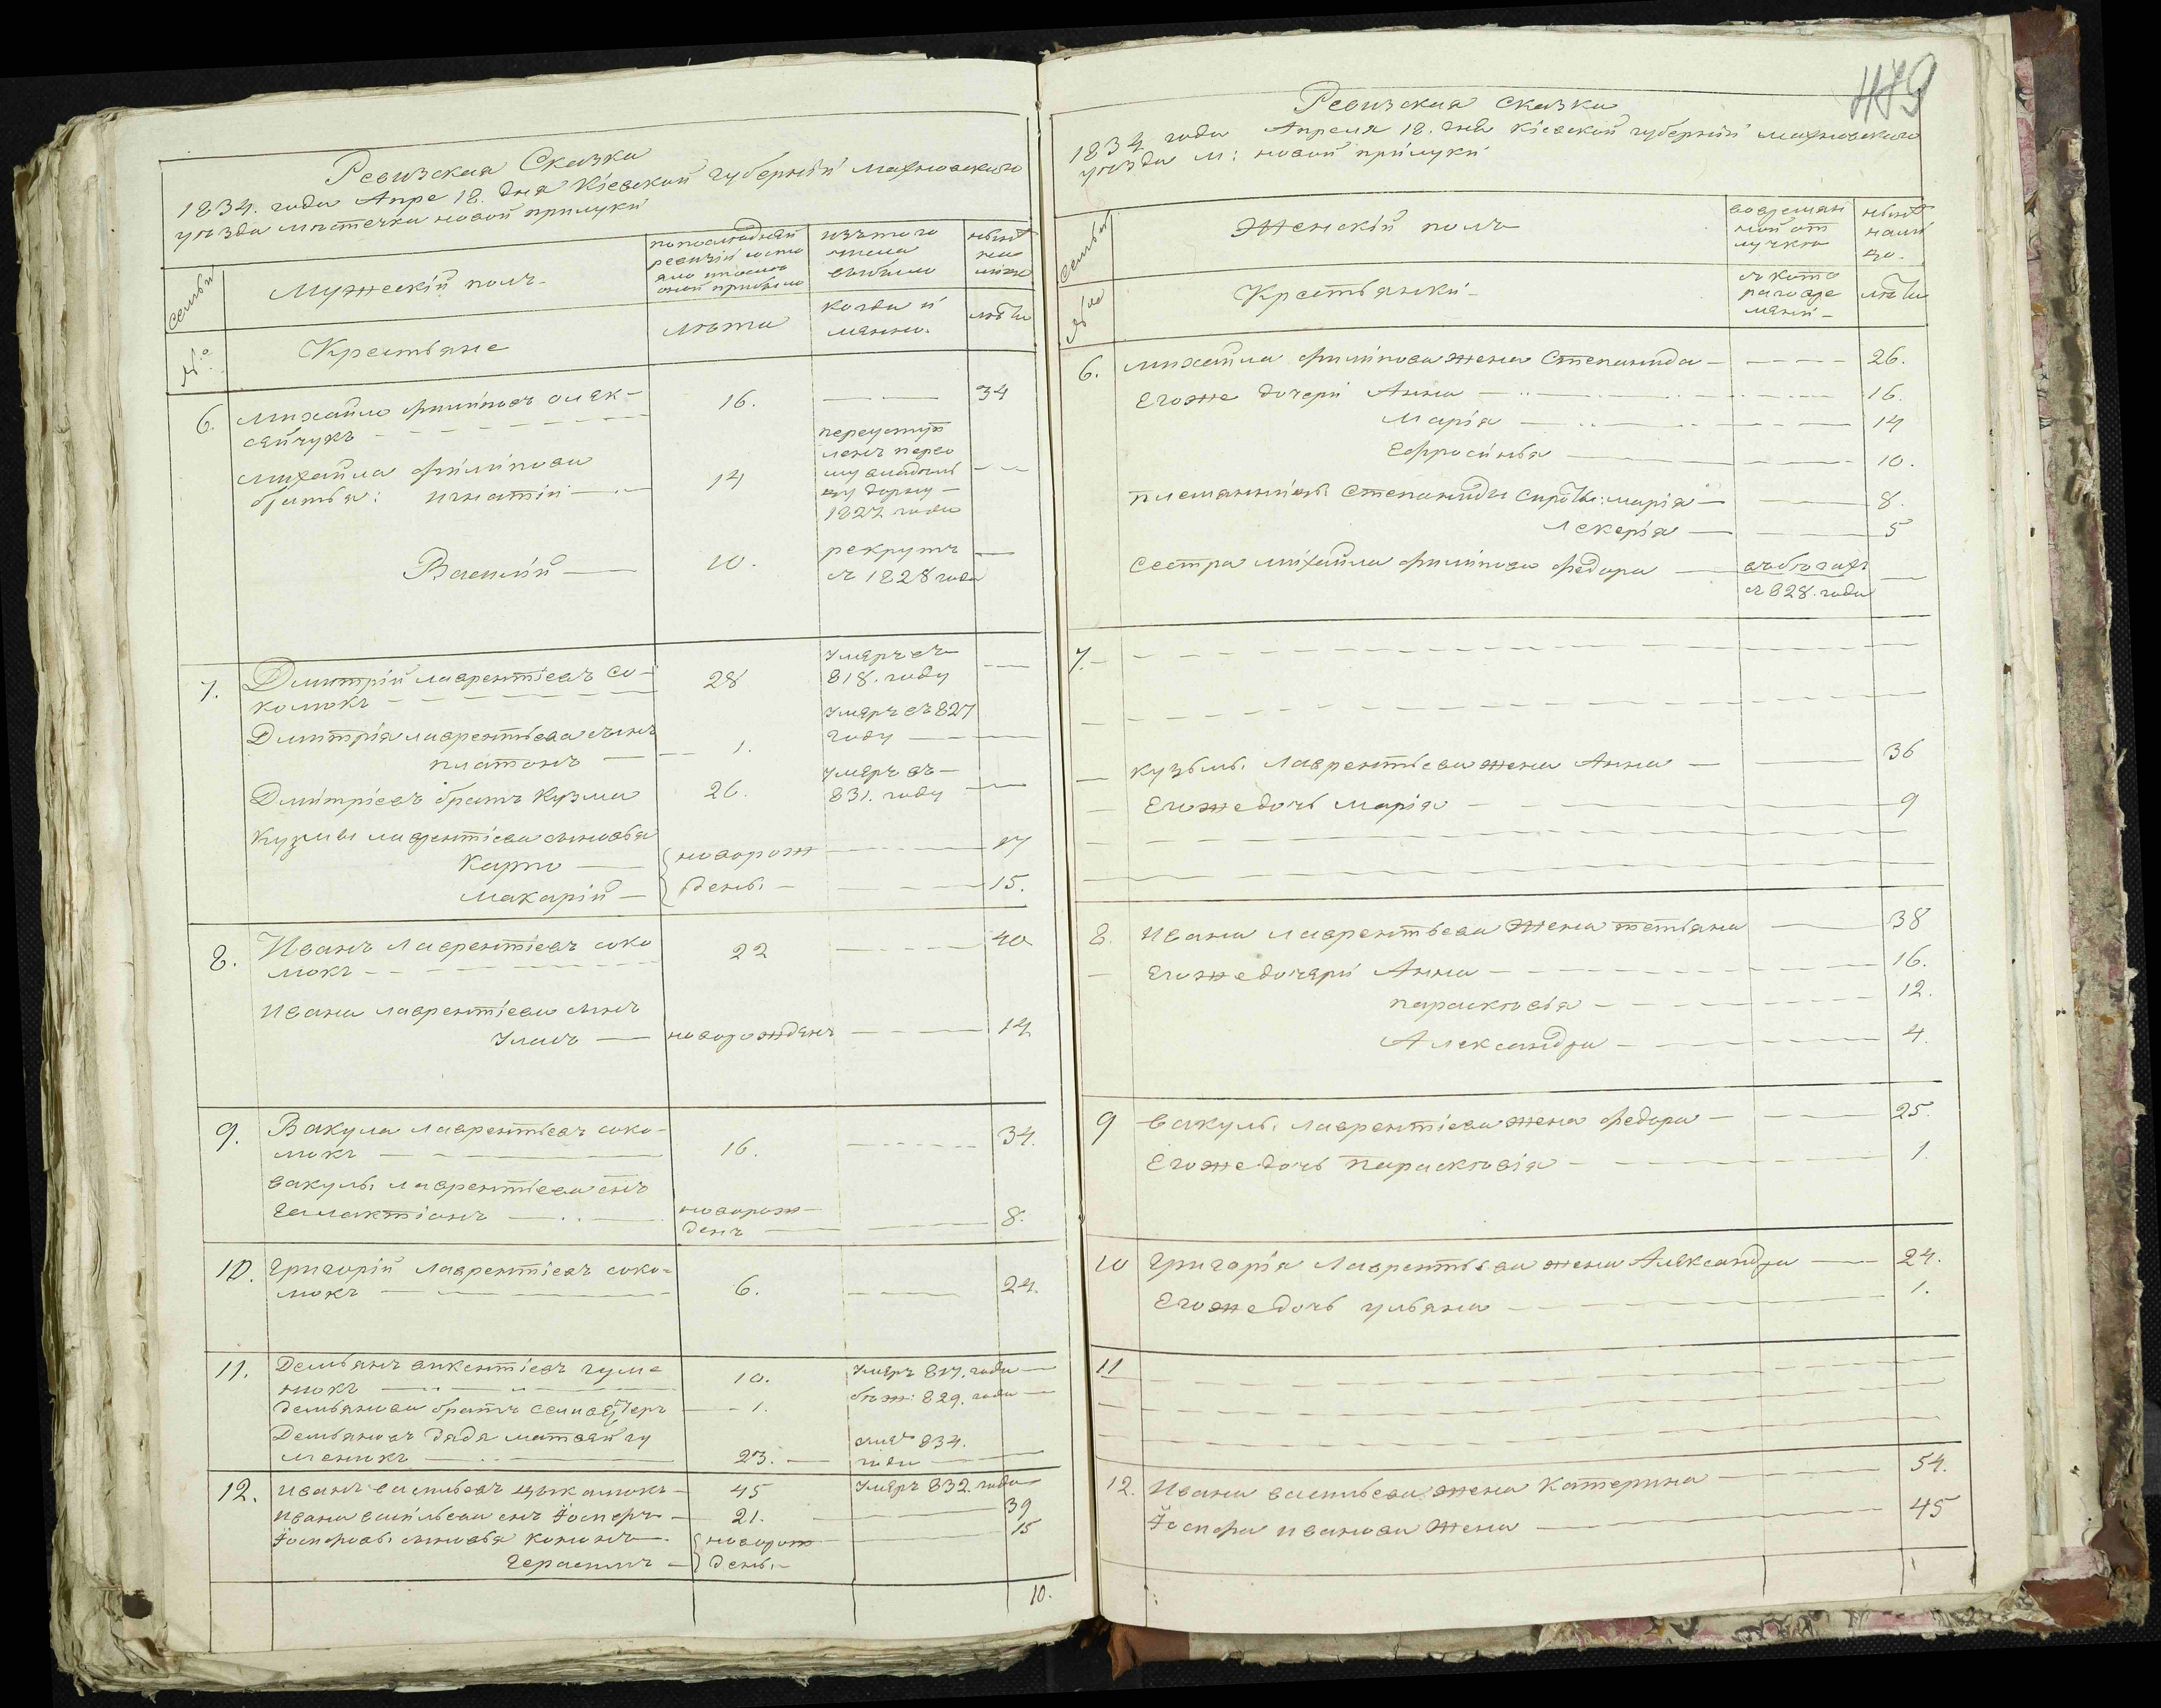 Ревизская Сказка
1834. года Апре 18. дня Кіевской губерніи махновскаго
уѣзда мѣстечка новой прилуки
семьи
Мужескій полъ
по последней
ревизіи состо
яло и после
оной прибыло
изъ того
числа
выбыло
нынѣ
на
лицо
№о
Крестьяне
лѣта
когда и
лѣта
6.
михайло филиповъ олек-
сейчукъ
16.
34
михайла филипова
братья: игнатій
14
переуступ
ленъ
1827 года
Василій
10.
рекрутъ
съ 1828 года
7.
Дмитрій лаврентіевъ со-
колюкъ
28
Умеръ съ
818. году
Дмитрія лаврентьева сынъ
платонъ
1.
Умеръ съ 827
году
Дмитріевъ братъ Кузма
26.
Умеръ въ
831. году
Кузмы лаврентіева сыновья
Карпо
новорож
17
макарій
дены
15.
8.
Иванъ лаврентіевъ соко
люкъ
22
40
Ивана лаврентіева сынъ
новорожденъ
14
9.
Вакула лаврентьевъ соко-
люкъ
16.
34.
вакулы лаврентьева снъ
Галактіонъ
новорож-
денъ
8.
10.
Григорій лаврентіевъ соко-
люкъ
6.
24.
11.
Демьянъ викентіевъ гуме
нюкъ
10.
Умеръ 817. года
демьянова братъ
1.
беж: 829. года
Демьяновъ дядя матвей гу
менюкъ
23.
834.
года
12.
иванъ васильевъ
45
Умеръ 832. года
ивана васильева снъ Іосифъ
21.
39
сыновья кононъ
новорож
15
Герасимъ
дены
10.
479
Ревизская сказка
1834 года Апреля 18. дня Кіевской губерніи махновскаго
уѣзда м: новой прилуки
семьи
Женскій полъ
во времян
ной от
лучке
нынѣ
нали
цо.
№о
Крестьянки
съ кото
раго вре
мяни
лѣта
6.
михайла филипова жена Степанида
26.
Егоже дочери Анна
16.
Марія
14
Ефросинья
10.
племянницы Степаниды сироты: марія
8.
Лекерія
5
Сестра михайла филипова федора
въ бегахъ
съ 828. года
7.
кузьмы лаврентьева жена Анна
36
Егоже дочь марія
9
8.
Ивана лаврентьева жена тетьяна
38
Егоже дочери Анна
16.
парасковья
12.
Александра
4.
9
вакулы лаврентіева жена федора
25.
Егоже дочь параскювія
1
10
Григорія Лаврентьева жена Александра
24.
Егоже дочь ульяна
1.
11
12.
Ивана васильева жена Катерина
54.
Іосифа иванова жена
45